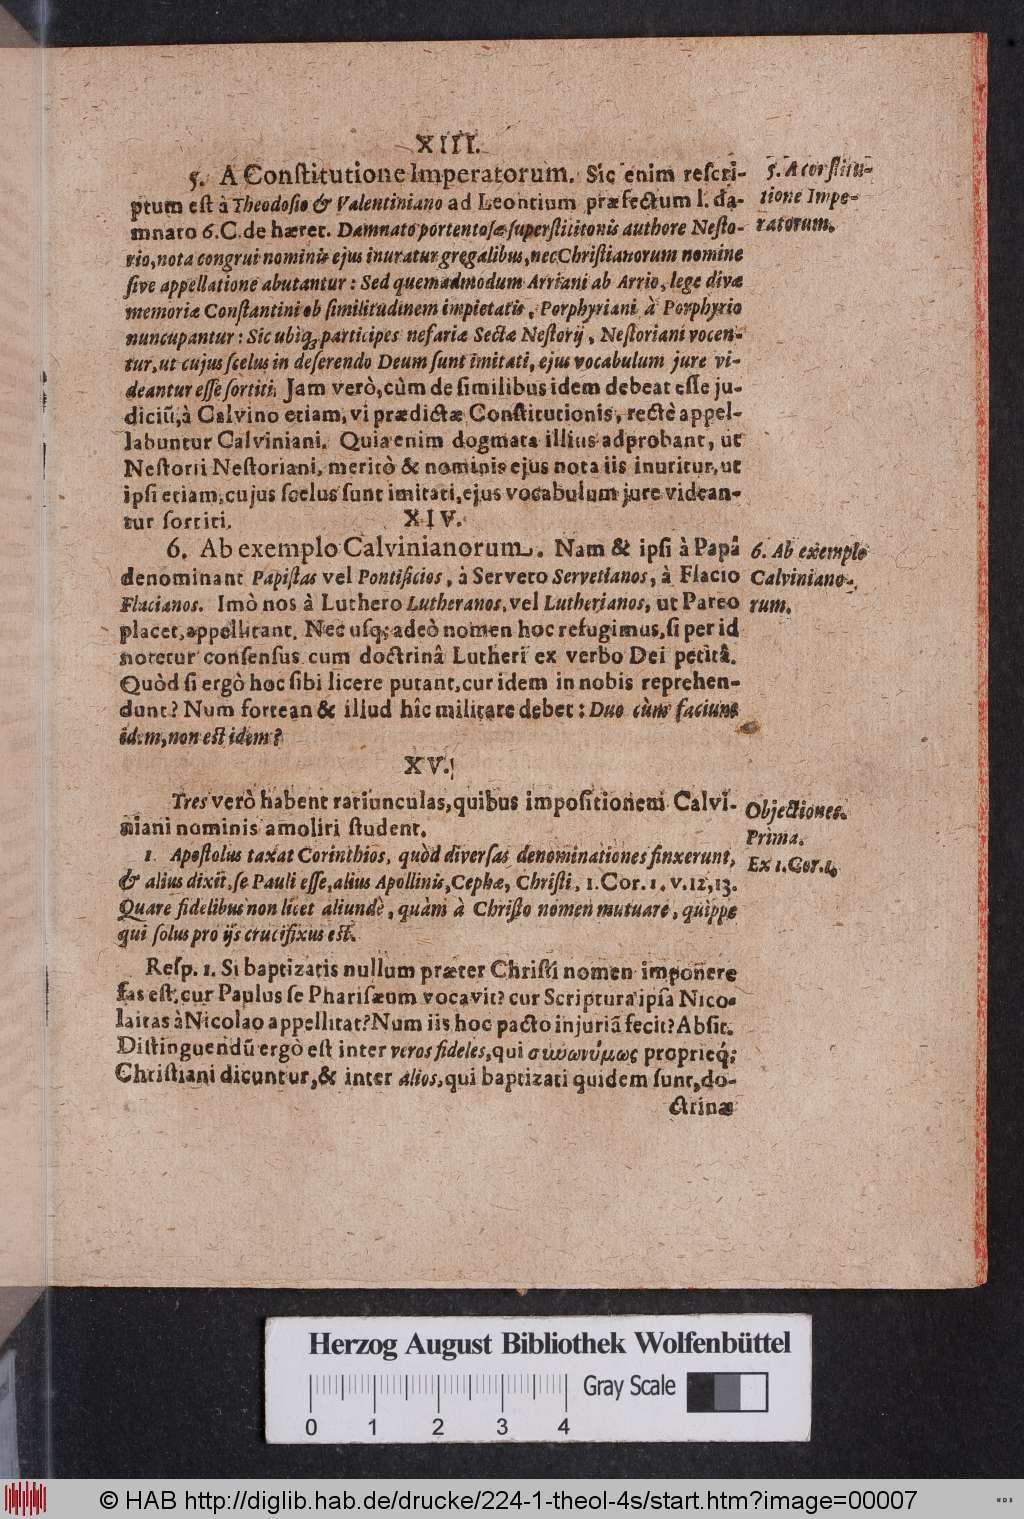 XIII.
5. A Constitutione Imperatorum. Sic enim reſcri-
ptum eſt à Theodoſio & Valentiniano ad Leontium præfectum l. da-
mnato 6. C. de hæret. Damnato portentoſæ ſuperſtititonis authore Neſto-
rio, nota congrui nominis ejus inuratur gregalibus, nec Chriſtianorum nomine
ſive appellatione abutantur: Sed quemadmodum Arriani ab Arrio, lege divæ
memoriæ Conſtantini ob ſimilitudinem impietatis, Porphyriani à Porphyrio
nuncupantur: Sic ubiq; participes nefariæ Sectæ Neſtorij, Neſtoriani vocen-
tur, ut cujus ſcelus in deſerendo Deum ſunt imitati, ejus vocabulum jure vi-
deantur eſſe ſortiti. Jam verò, cùm de ſimilibus idem debeat eſſe ju-
diciũ, à Calvino etiam, vi prædictæ Conſtitutionis, rectè appel-
labuntur Calviniani. Quia enim dogmata illius adprobant, ut
Neſtorii Neſtoriani, meritò & nominis ejus nota iis inuritur, ut
ipſi etiam, cujus ſcelus ſunt imitati, ejus vocabulum jure videan-
tur ſortiti.
XIV.
6. Ab exemplo Calvinianorum. Nam & ipſi à Papâ
denominant Papiſtas vel Pontificios, à Serveto Servetianos, à Flacio
Flacianos. Imò nos à Luthero Lutheranos, vel Lutherianos, ut Pareo
placet, appellitant. Nec uſq; adeò nomen hoc refugimus, ſi per id
notetur conſenſus cum doctrinâ Lutheri ex verbo Dei petitâ.
Quòd ſi ergò hoc ſibi licere putant, cur idem in nobis reprehen-
dunt? Num fortean & illud hîc militare debet: Duo cùm faciunt
idem, non eſt idem?
XV.
Tres verò habent ratiunculas, quibus impoſitionem Calvi-
niani nominis amoliri ſtudent.
1. Apoſtolus taxat Corinthios, quòd diverſas denominationes finxerunt,
& alius dixit, ſe Pauli eſſe, alius Apollinis, Cephæ, Chriſti, 1. Cor. 1. v. 12, 13.
Quare fidelibus non licet aliundè, quàm à Chriſto nomen mutuare, quippe
qui ſolus pro ijs crucifixus eſt.
Reſp. 1. Si baptizatis nullum præter Chriſti nomen imponere
fas eſt, cur Paulus ſe Phariſæum vocavit? cur Scriptura ipſa Nico-
laitas à Nicolao appellitat? Num iis hoc pacto injuriã fecit? Abſit.
Diſtinguendũ ergò eſt inter veros fideles, qui συνωνύμως propriéq;
Chriſtiani dicuntur, & inter alios, qui baptizati quidem ſunt, do-
ctrinæ
5. A conſtitu-
tione Impe-
ratorum.
6. Ab exemplo
Calviniano-
rum.
Objectiones.
Prima.
Ex 1. Cor. 1.
Herzog August Bibliothek Wolfenbüttel
Gray Scale
0 1 2 3 4
© HAB http://diglib.hab.de/drucke/224-1-theol-4s/start.htm?image=00007
WDB